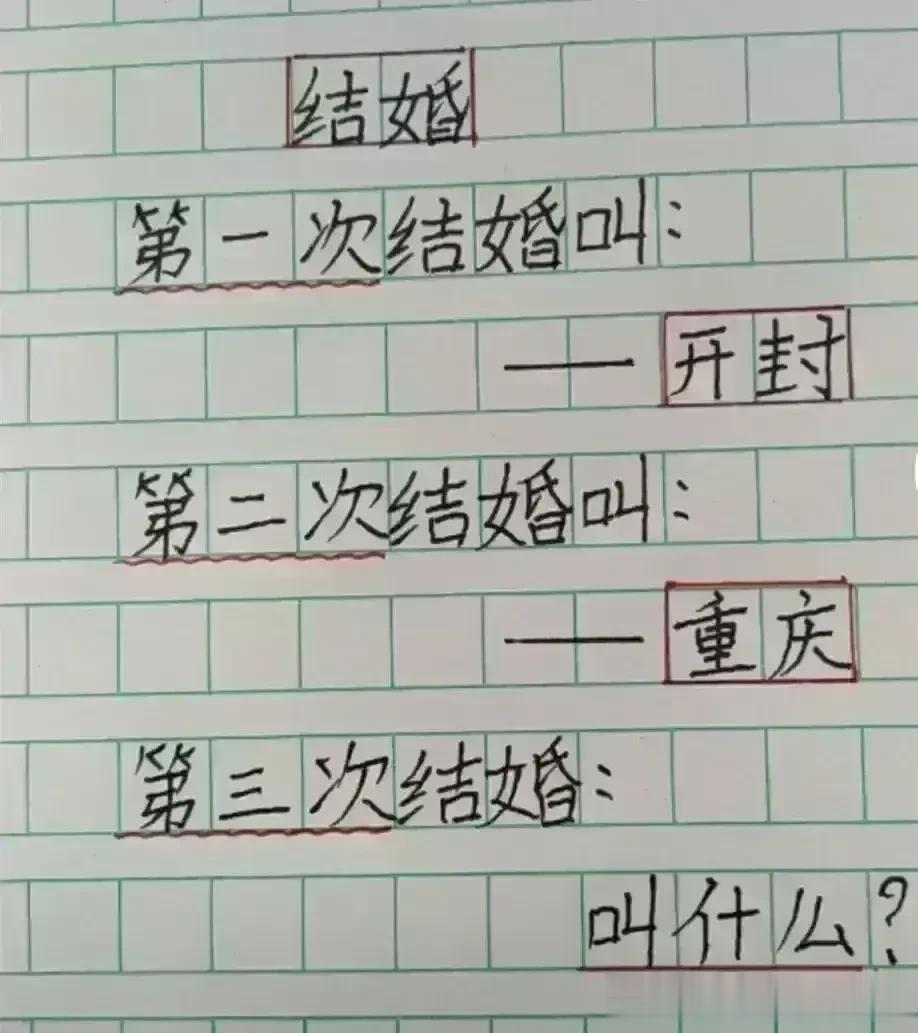 结婚
第一次结婚叫:
——开封
第二次结婚叫:
——重庆
第三次结婚:
叫什么?